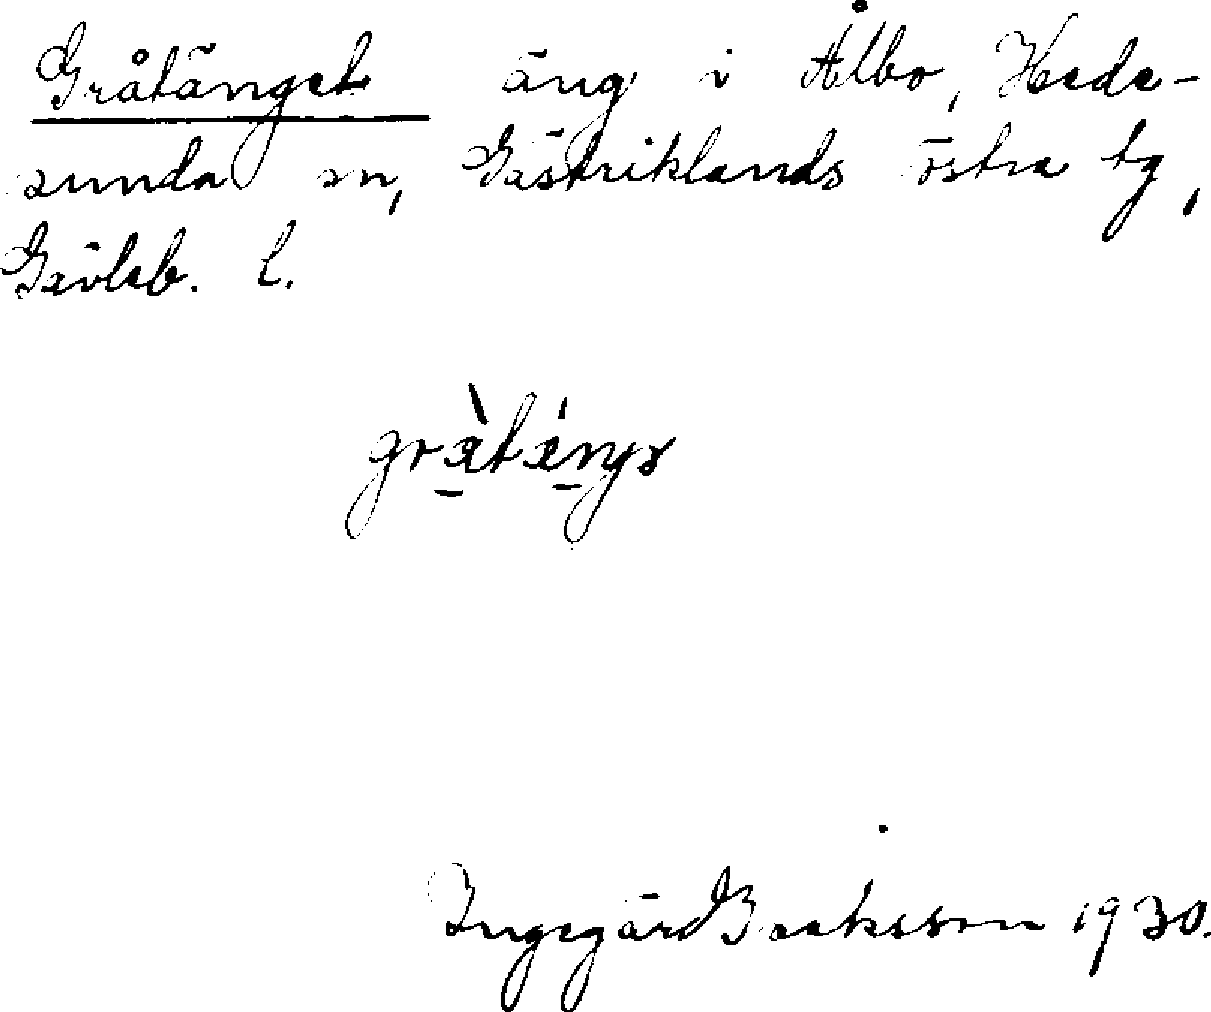 Gråtänget äng i Ålbo, Hede-
sunda sn, Gästriklands östra tg,
Gävleb. l.
Ingegärd Isaksson 1930.